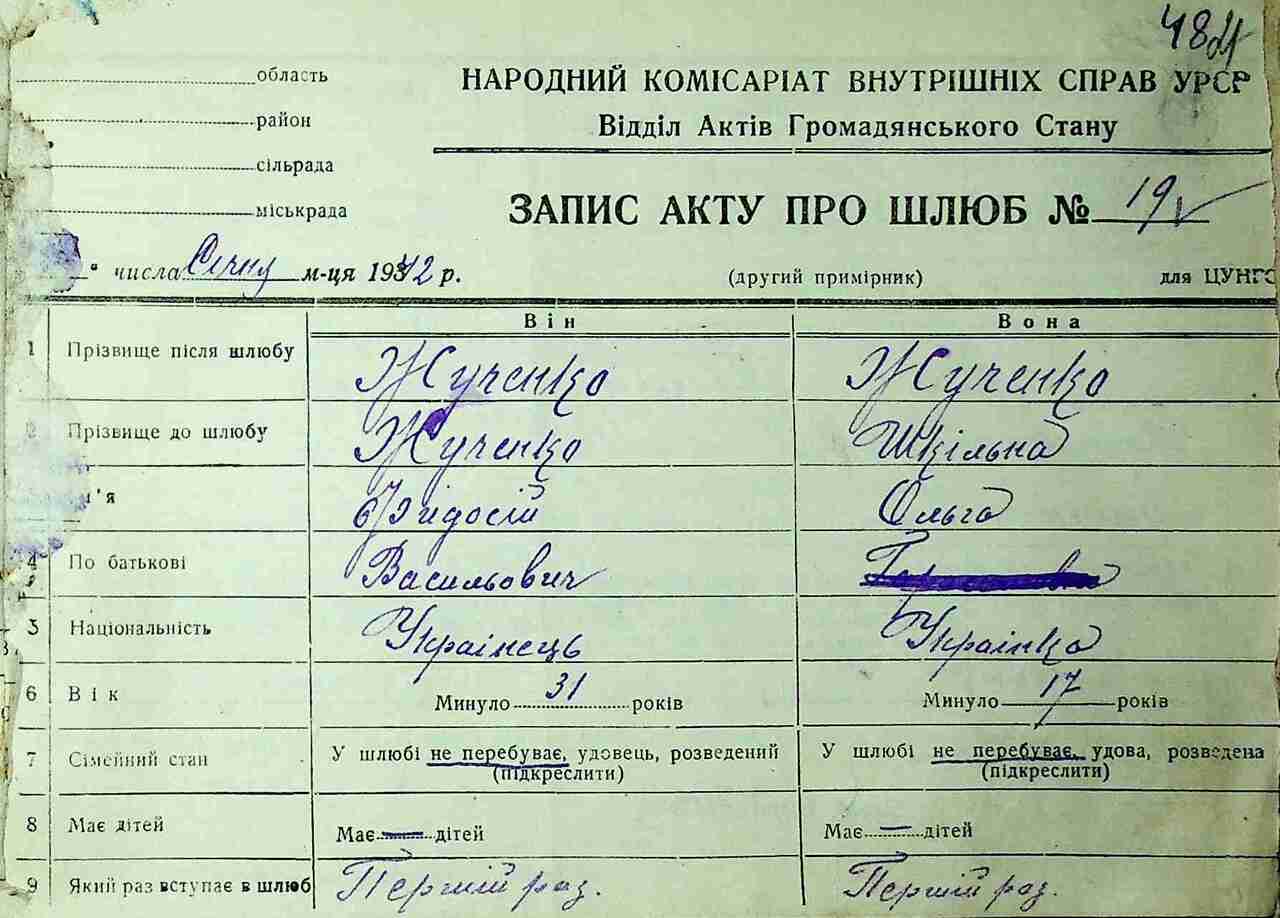 48
область
НАРОДНИЙ КОМІСАРІАТ ВНУТРІШНІХ СПРАВ УРСР
район
Відділ Актів Громадянського Стану
сільрада
міськрада
ЗАПИС АКТУ ПРО ШЛЮБ № 19
" числа Січня м-ця 1942 р.
(другий примірник)
для ЦУНГО
Він
Вона
1 Прізвище після шлюбу Жученко Жученко
2 Прізвище до шлюбу Жученко Шкільна
м'я Ольга
4 По батькові Васильович
5 Національність Украінець Украінка
6 Вік Минуло 31 років Минуло 17 років
7 Сімейний стан У шлюбі не перебуває, удовець, розведений У шлюбі не перебуває, удова, розведена
(підкреслити) (підкреслити)
8 Має дітей Має — дітей Має — дітей
9 Який раз вступає в шлюб Перший раз. Перший раз.